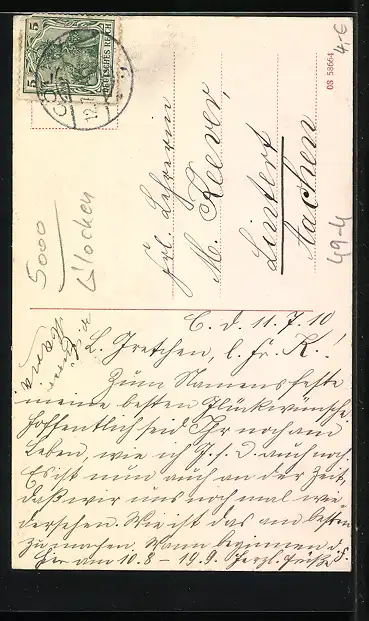 5
5
DEUTSCHES REICH
CÖL
12.7
08 58664
4,-€
49-4
5000
Glocken
Frl. Lehrerin
M. Keever,
Lintert
Aachen
C. d. 11. 7. 10
L. Gretchen, l. Fr. K.!
Zum Namensfeste
meine besten Glückwünsche
Hoffentlich seid Ihr noch am
Leben, wie ich J. s. D. auch noch.
Es ist nun auch an der Zeit,
daß wir uns noch mal wie
dersehen. Wie ist das am besten
zu machen. Wann beginnen d. F.
hier am 10.8 – 19.9. Herzl. Grüße